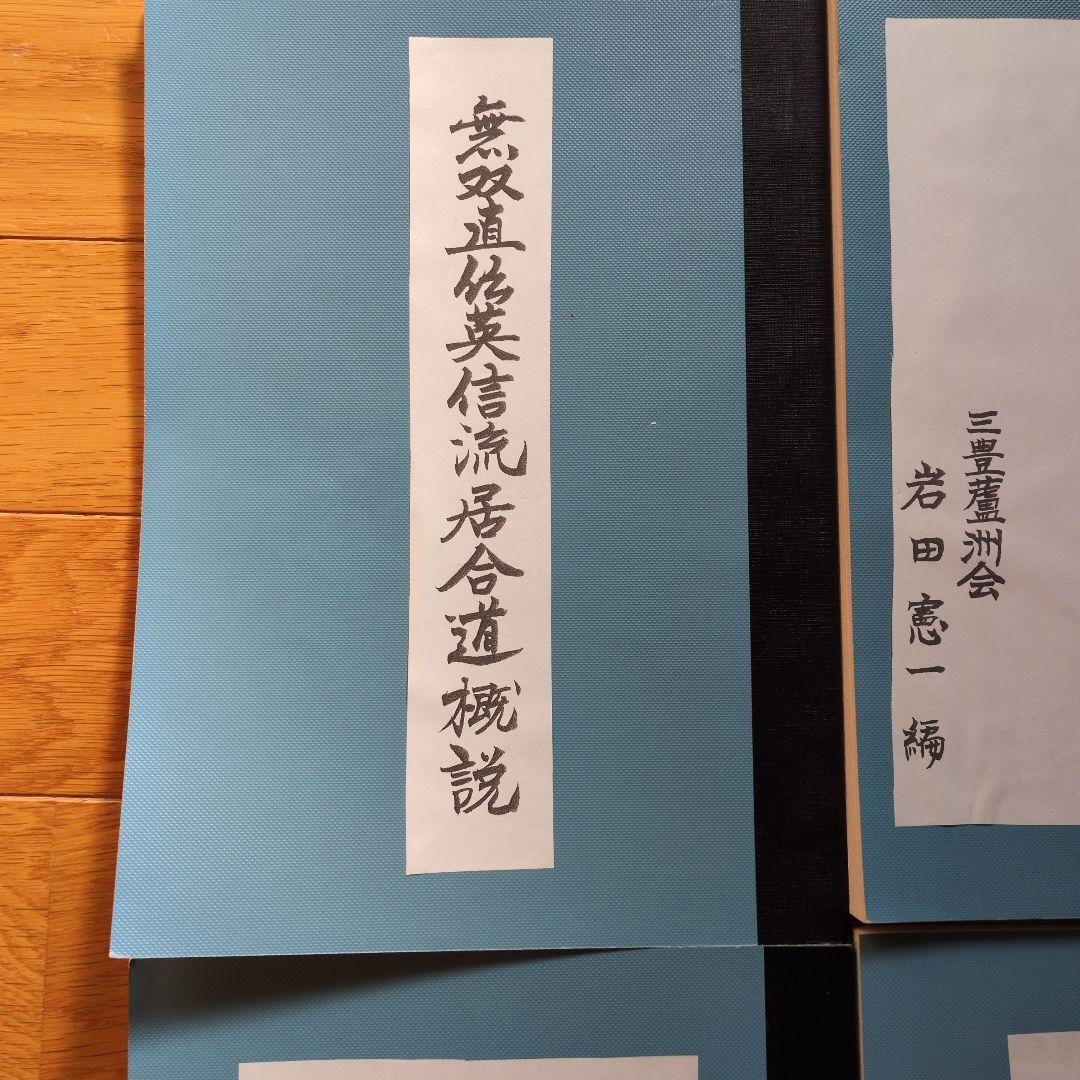 無双直伝英信流居合道概説
三豊蘆洲会
岩田憲一編